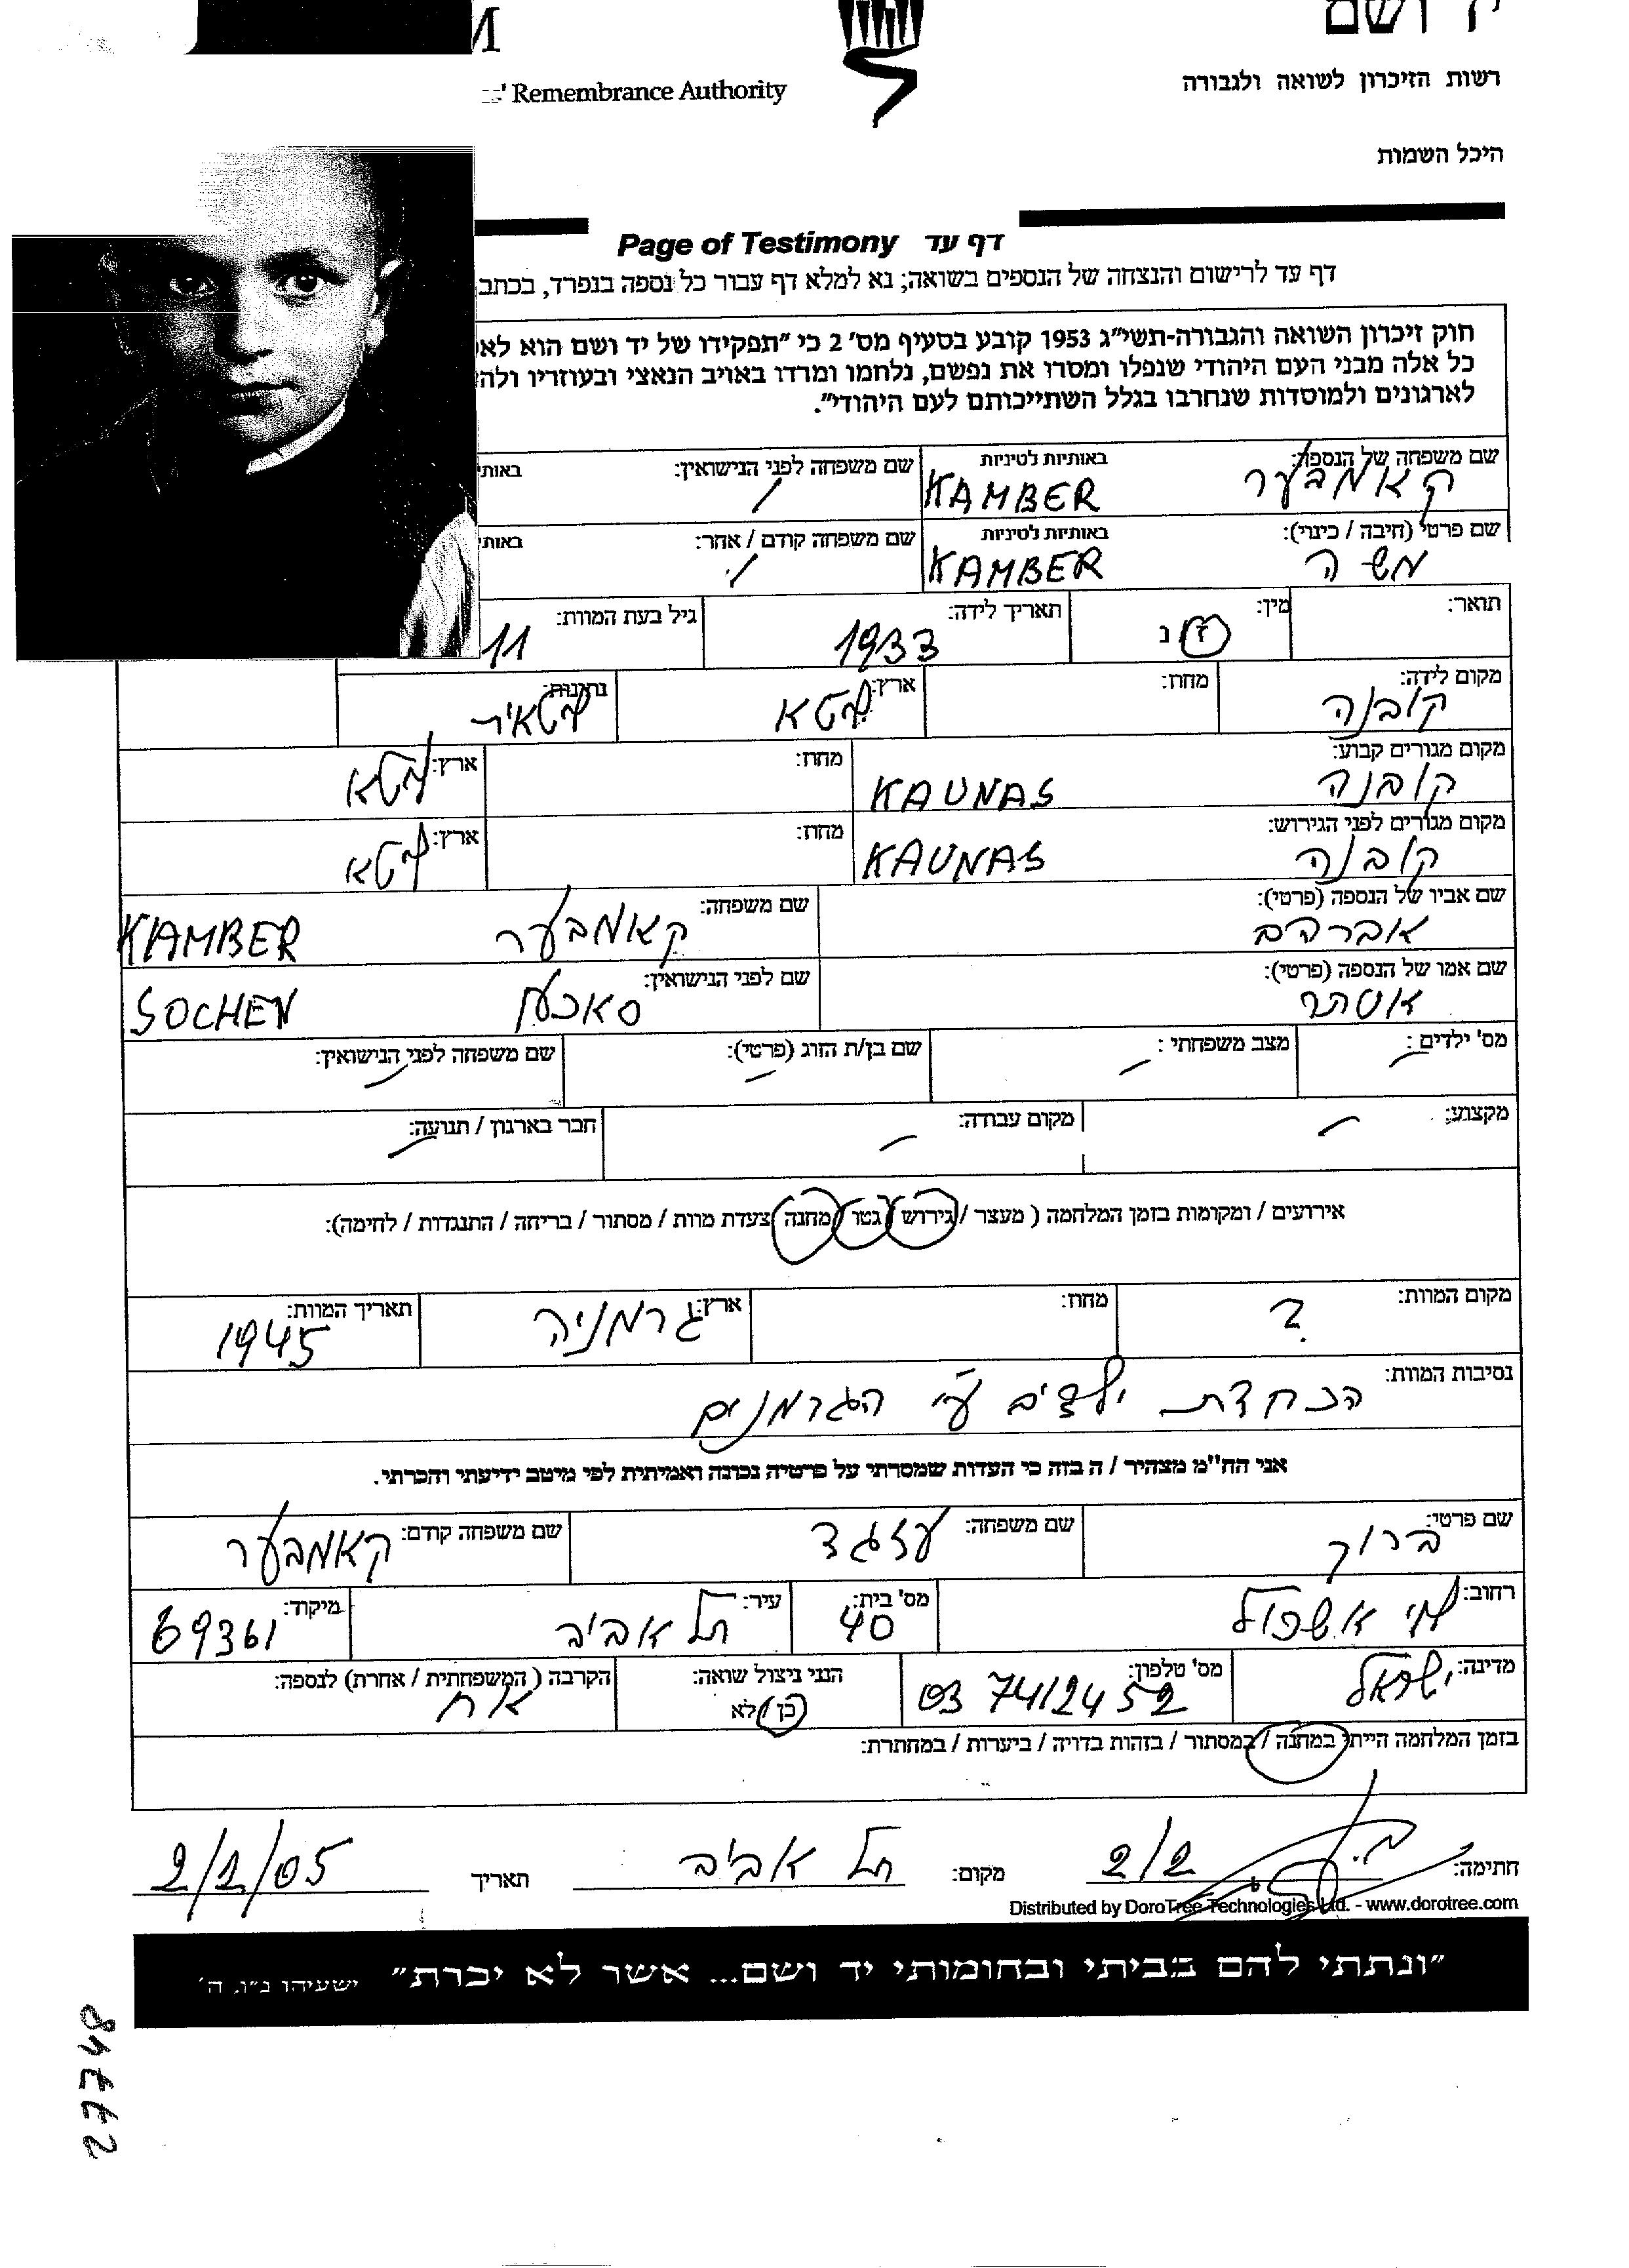 יד ושם
' Remembrance Authority
רשות הזיכרון לשואה ולגבורה
היכל השמות
Page of Testimony דף עד
דף עד לרישום והנצחה של הנספים בשואה; נא למלא דף עבור כל נספה בנפרד, בכתב
חוק זיכרון השואה והגבורה-תשי"ג 1953 קובע בסעיף מס' 2 כי "תפקידו של יד ושם הוא לאס
כל אלה מבני העם היהודי שנפלו ומסרו את נפשם, נלחמו ומרדו באויב הנאצי ובעוזריו ולהצ
לארגונים ולמוסדות שנחרבו בגלל השתייכותם לעם היהודי".
שם משפחה של הנספה: קאמבער באותיות לטיניות KAMBER שם משפחה לפני הנישואין: / באותי
שם פרטי (חיבה / כינוי): משה באותיות לטיניות KAMBER שם משפחה קודם / אחר: / באותי
תואר: מין: ז נ תאריך לידה: 1933 גיל בעת המוות: 11
מקום לידה: קובנה מחוז: ארץ: ליטא נתינות: ליטאית
מקום מגורים קבוע: קובנה KAUNAS מחוז: ארץ: ליטא
מקום מגורים לפני הגירוש: קובנה KAUNAS מחוז: ארץ: ליטא
שם אביו של הנספה (פרטי): אברהם שם משפחה: קאמבער KAMBER
שם אמו של הנספה (פרטי): אסתר שם לפני הנישואין: סאכען SOCHEN
מס' ילדים: מצב משפחתי: שם בן/ת הזוג (פרטי): שם משפחה לפני הנישואין:
מקצוע: מקום עבודה: חבר בארגון / תנועה:
אירועים / ומקומות בזמן המלחמה ( מעצר / גירוש / גטו / מחנה / צעדת מוות / מסתור / בריחה / התנגדות / לחימה):
מקום המוות: ? מחוז: ארץ: גרמניה תאריך המוות: 1945
נסיבות המוות: הכחדת ילדים ע"י הגרמנים
אני הח"מ מצהיר / ה בזה כי העדות שמסרתי על פרטיה נכונה ואמיתית לפי מיטב ידיעתי והכרתי.
שם פרטי: ברוך שם משפחה: שם משפחה קודם: קאמבער
רחוב: לוי אשכול מס' בית: 40 עיר: תל אביב מיקוד: 69361
מדינה: ישראל מס' טלפון: 03 7412452 הנני ניצול שואה: כן / לא הקרבה ( המשפחתית / אחרת) לנספה: אח
בזמן המלחמה הייתי במחנה / במסתור / בזהות בדויה / ביערות / במחתרת:
חתימה: 2/2 מקום: תל אביב תאריך 2/2/05
Distributed by DoroTree Technologies Ltd. - www.dorotree.com
"ונתתי להם בביתי ובחומותי יד ושם... אשר לא יכרת" ישעיהו נ"ו, ה'
27748